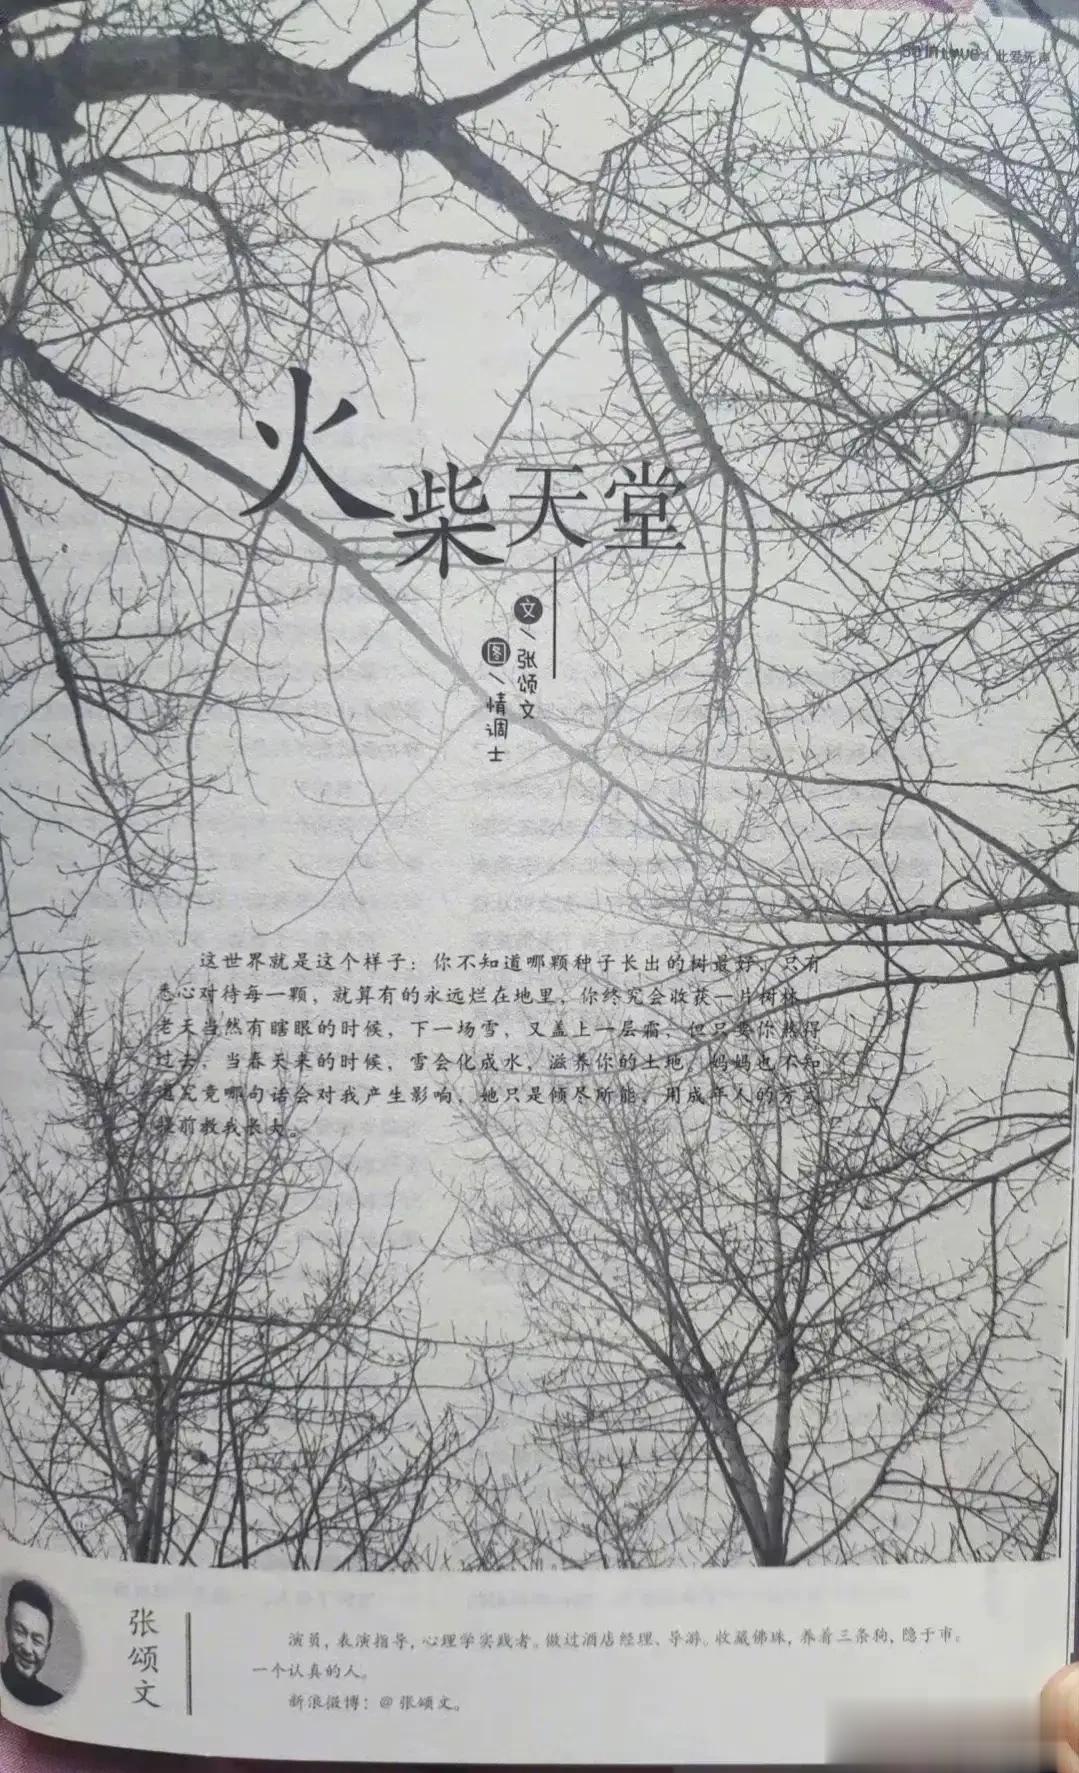 此爱无声
火柴天堂
文/张颂文
图/情调士
这世界就是这个样子：你不知道哪颗种子长出的树最好，只有
悉心对待每一颗，就算有的永远烂在地里，你终究会收获一片树林。
老天当然有瞎眼的时候，下一场雪，又盖上一层霜，但只要你熬得
过去，当春天来的时候，雪会化成水，滋养你的土地。妈妈也不知
道究竟哪句话会对我产生影响，她只是倾尽所能，用成年人的方式
提前教我长大。
张颂文
演员，表演指导，心理学实践者。做过酒店经理、导游。收藏佛珠，养着三条狗，隐于市。
一个认真的人。
新浪微博：@张颂文。